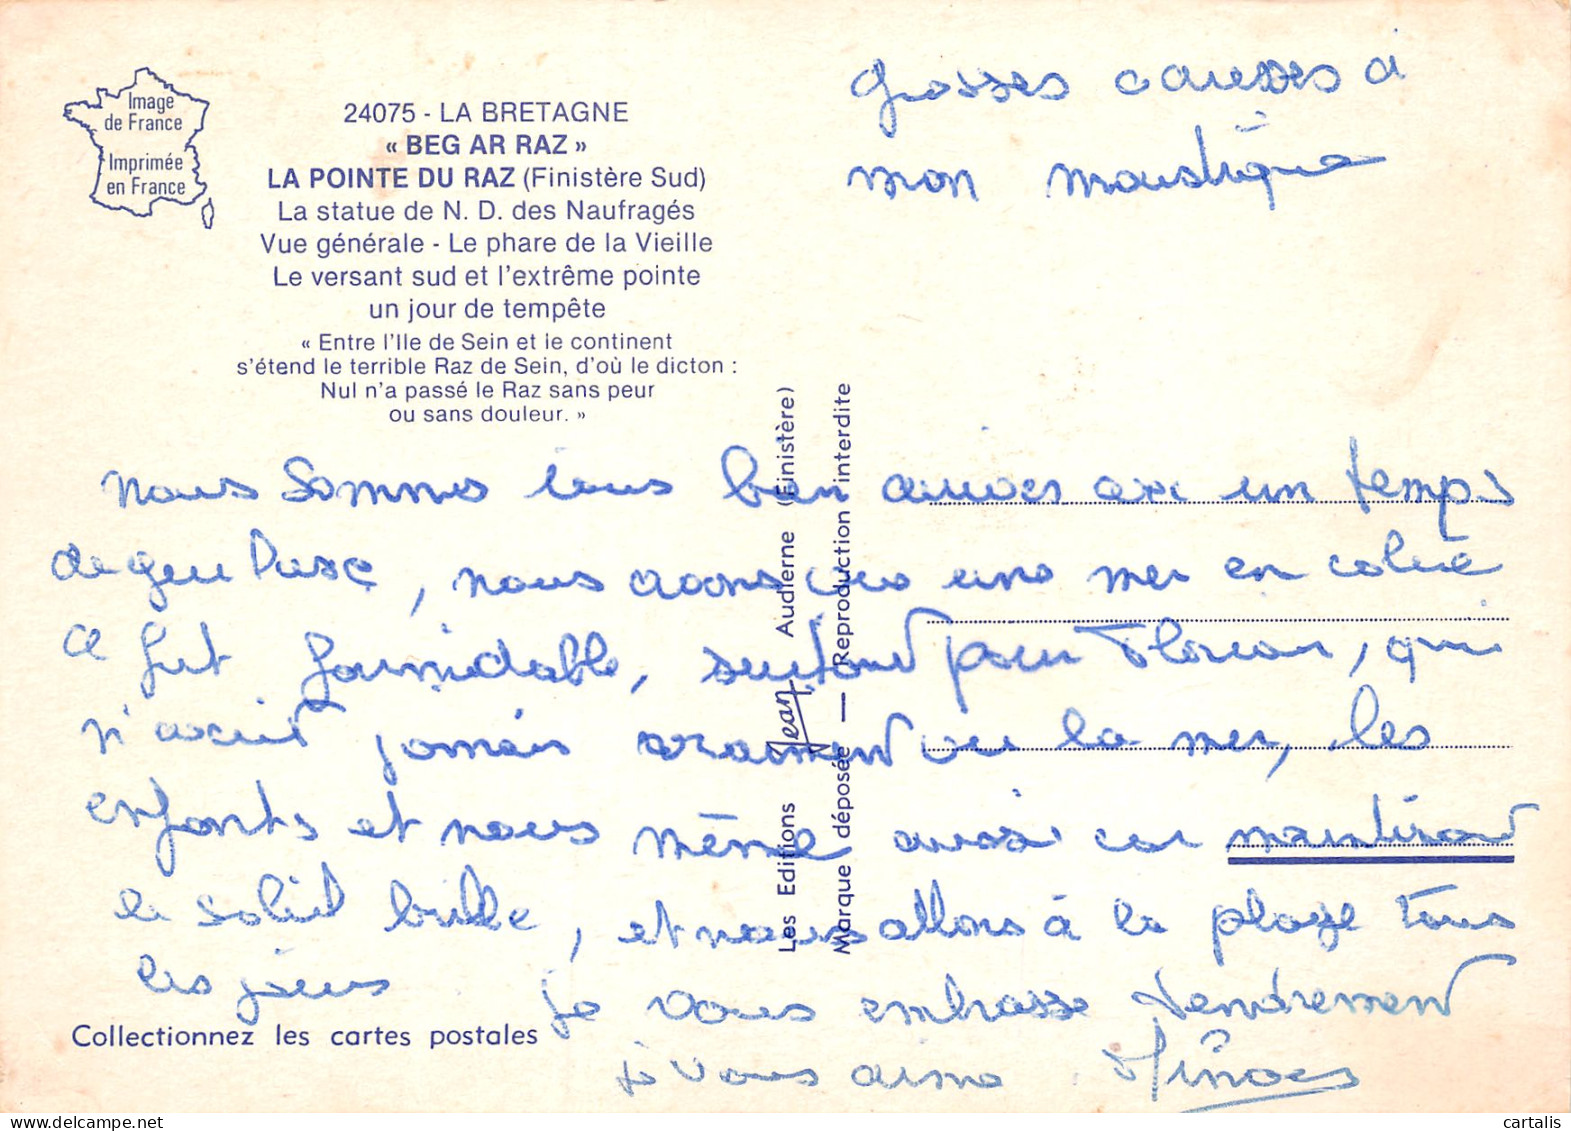 Image
de France
Imprimée
en France
24075 - LA BRETAGNE
« BEG AR RAZ »
LA POINTE DU RAZ (Finistère Sud)
La statue de N. D. des Naufragés
Vue générale - Le phare de la Vieille
Le versant sud et l'extrême pointe
un jour de tempête
« Entre l'Ile de Sein et le continent
s'étend le terrible Raz de Sein, d'où le dicton :
Nul n'a passé le Raz sans peur
ou sans douleur. »
Grosses caresses a
mon moustique
nous sommes tous bien arrivés avec un temps
de , nous avons vu une mer en colère
ce fut formidable, surtout pour Florian, qui
n'avait jamais vraiment vu la mer, les
enfants et nous même aussi car maintenant
le soleil brille, et nous allons à la plage tous
les jours je vous embrasse tendrement
je vous aime
Les Editions Jean Audierne (Finistère)
Marque déposée — Reproduction interdite
Collectionnez les cartes postales
cartalis